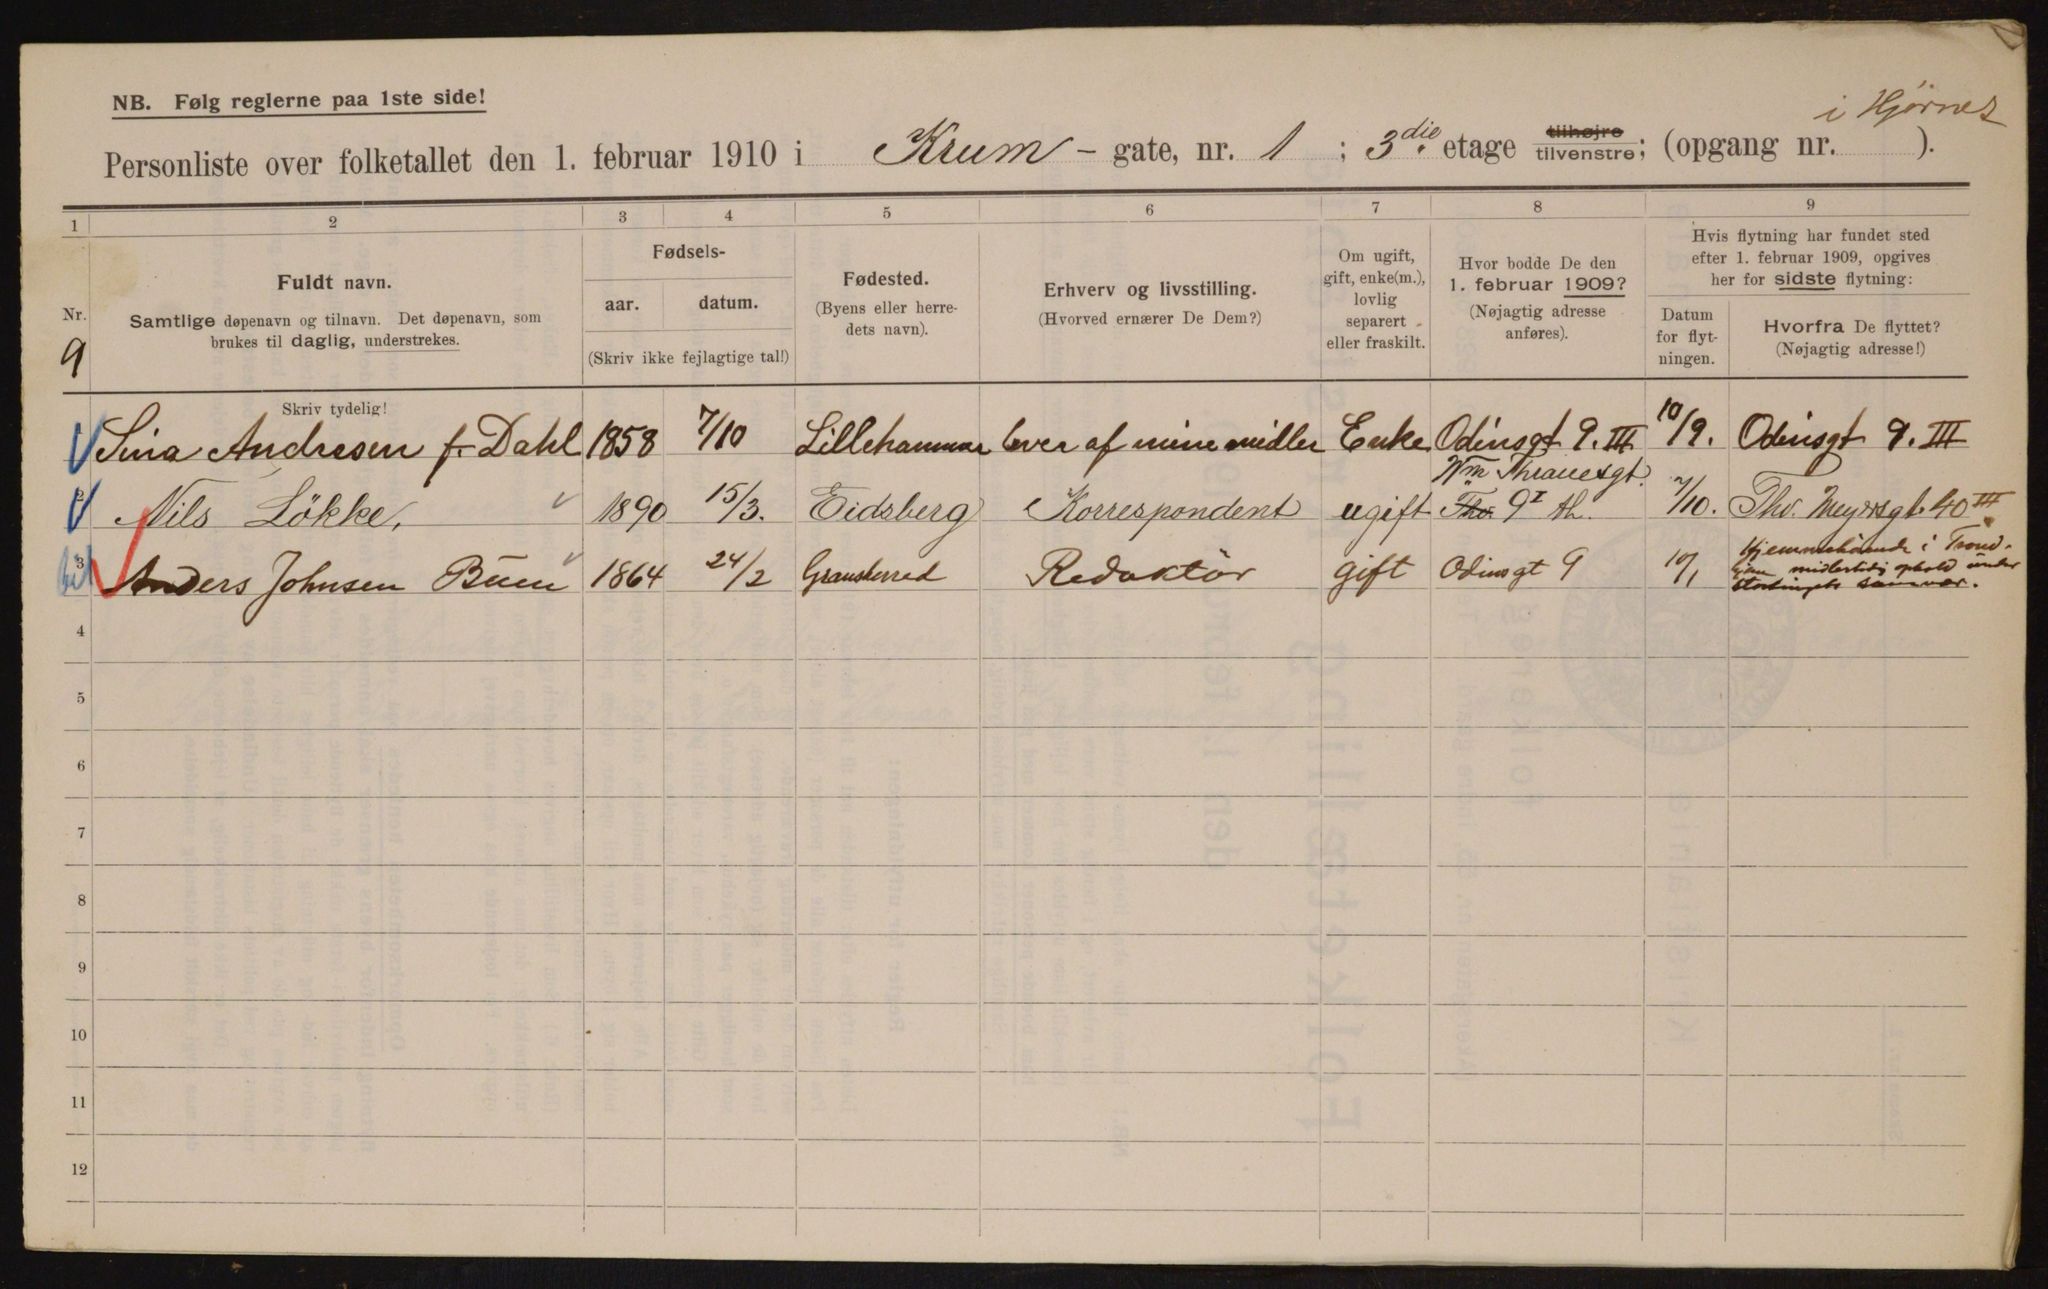 NB. Følg reglerne paa 1ste side!
i Hjørnet
Personliste over folketallet den 1. februar 1910 i Krum - gate, nr. 1 ; 3die etage tilhøjre tilvenstre; (opgang nr. ).
1 2 3 4 5 6 7 8 9
Nr.
9
Fuldt navn.
Samtlige døpenavn og tilnavn. Det døpenavn, som
brukes til daglig, understrekes.
Skriv tydelig!
Fødsels-
aar. datum.
(Skriv ikke fejlagtige tal!)
Fødested.
(Byens eller herre-
dets navn).
Erhverv og livsstilling.
(Hvorved ernærer De Dem?)
Om ugift,
gift, enke(m.),
lovlig
separert
eller fraskilt.
Hvor bodde De den
1. februar 1909?
(Nøjagtig adresse
anføres).
Hvis flytning har fundet sted
efter 1. februar 1909, opgives
her for sidste flytning:
Datum
for flyt-
ningen.
Hvorfra De flyttet?
(Nøjagtig adresse!)
Sina Andresen f. Dahl 1858 7/10 Lillehammer lever af mine midler Enke Odinsgt 9. III 10/9. Odinsgt 9. III
Wm Thranesgt.
2 Nils Løkke, 1890 15/3. Eidsberg Korrespondent ugift Tho. 9 I th. 7/10. Thv. Meyersgt. 40 III
3 Anders Johnsen Buen 1864 24/2 Gransherred Redaktør gift Odinsgt 9 10/1 Hjemmehørende i Trond-
hjem midlertidig ophold under
stortingets samvær.
4
5
6
7
8
9
10
11
12